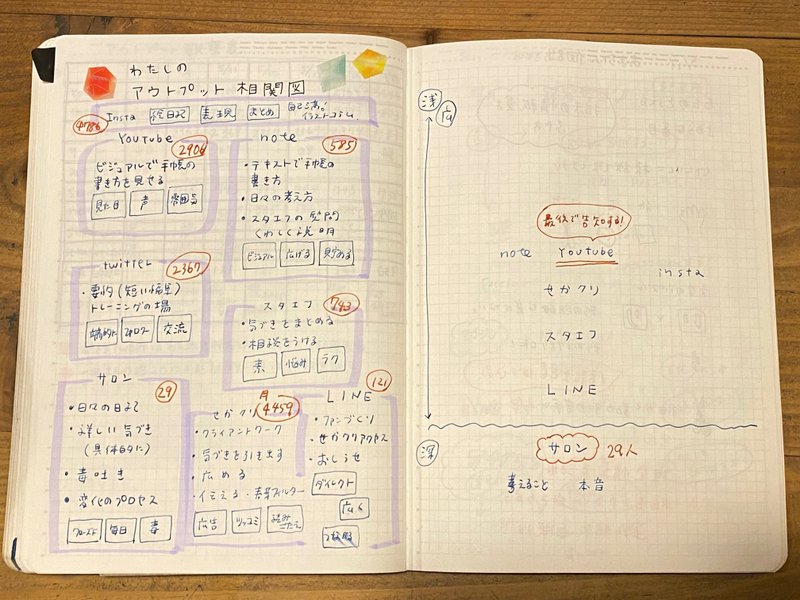 わたしの
アウトプット 相関図
Insta 絵日記 表現 まとめ 自己満!
イラストコラム
4786
YouTube
2906
ビジュアルで手帳の
書き方を見せる
見た目 声 雰囲気
note
585
・テキストで手帳の
書き方
・日々の考え方
・スタエフの質問
くわしく説明
ビジュアル 広げる 貯める
twitter
2367
・要約(短い編集)
トレーニングの場
端的に フォロワー 交流
スタエフ
743
・気づきをまとめる
・相談をうける
素 悩み ラク
サロン
29
・日々の日記
・詳しい気づき
(具体的に)
・毒吐き
・変化のプロセス
クローズド 毎日 毒
せかクリ
月
4459
・クライアントワーク
・気づきを引き出す
・広める
・伝える・素早フィルター
広告 ツッコミ 読み
ごたえ
LINE
121
・ファンづくり
・せかクリアクセス
・おしらせ
ダイレクト
広く
浅 広
最後で告知する!
note YouTube
insta
せかクリ
スタエフ
LINE
深
サロン 29人
考えること 本音